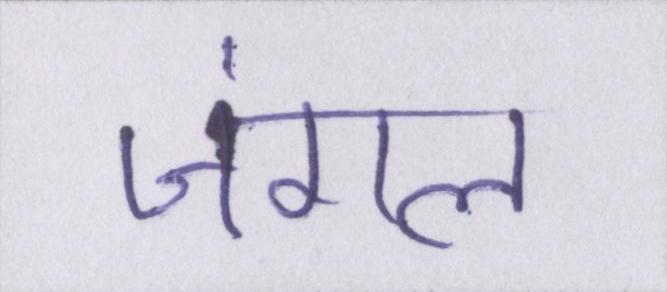 जंगल